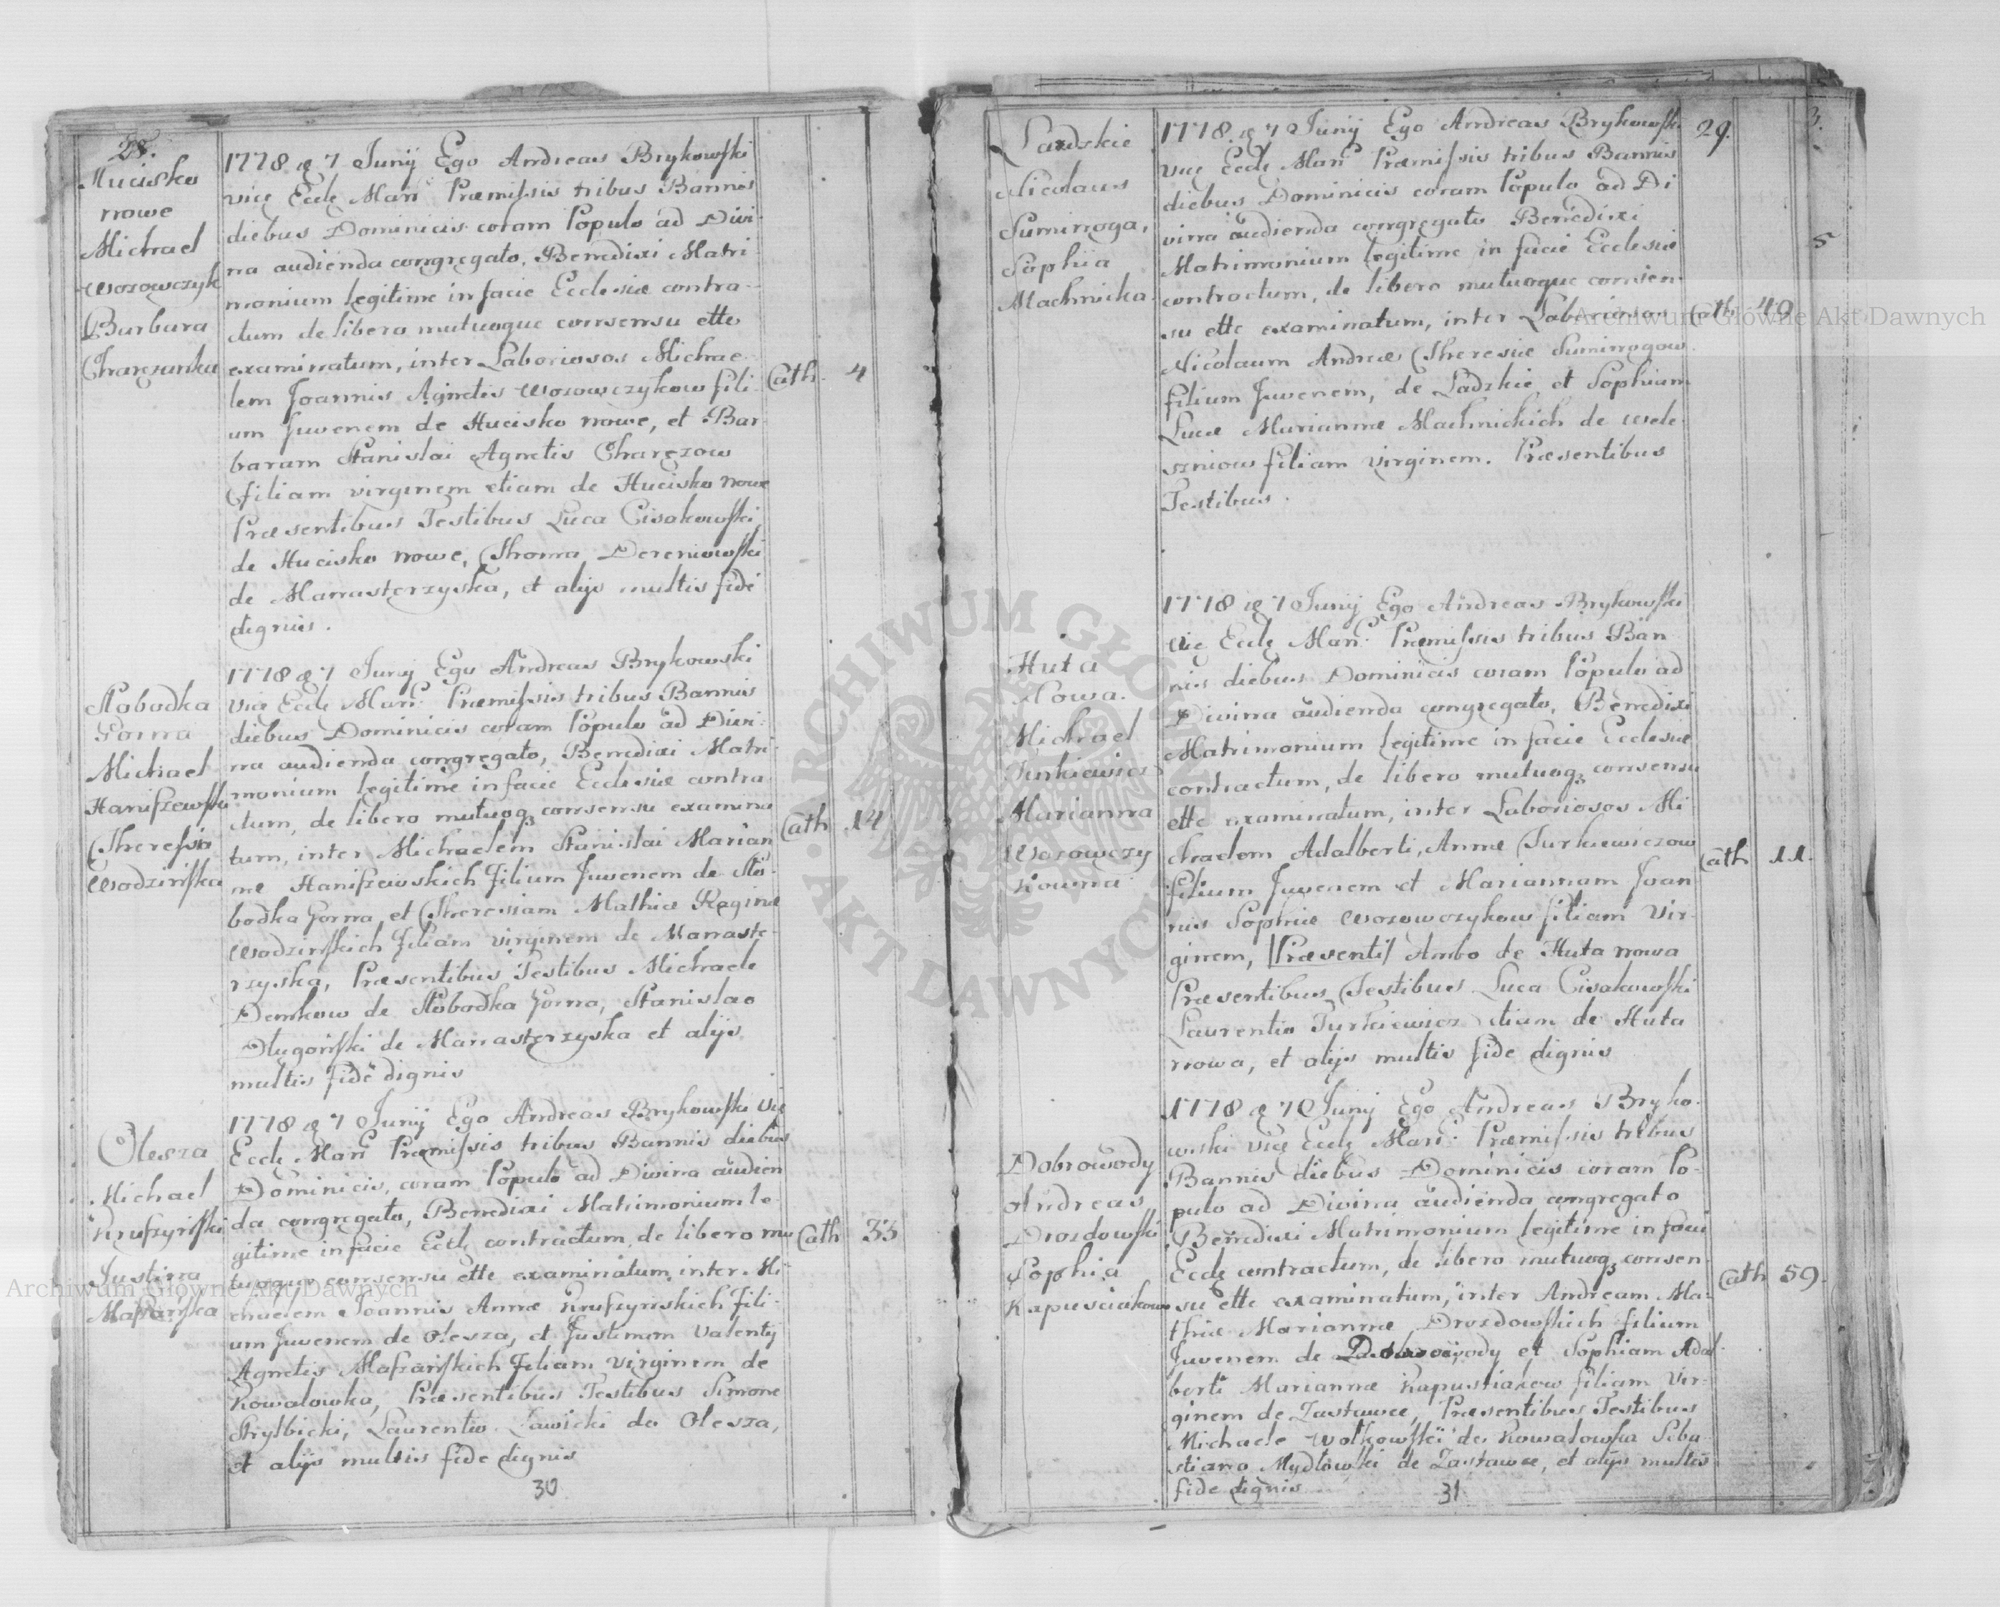 28.
Hucisko
nowe
Michael
Wozowczyk
Barbara
Charęzanka
1778 & 7 Junij Ego Andreas Brykowski
vice Eccle Man. Præmissis tribus Bannis
diebus Dominicis coram Populo ad Divi-
na audienda congregato, Benedixi Matri-
monium legitime in facie Ecclesiæ contra-
ctum de libero mutuoque consensu ette
examinatum, inter Laboriosos Michae-
lem Joannis Agnetis Wozowczykow fili-
um Juvenem de Hucisko nowe, et Bar
baram Stanislai Agnetis Charęzow
filiam virginem etiam de Hucisko nowe
Præsentibus Testibus Luca Cisakowski
de Hucisko nowe, Thoma Dereniowski
de Manasterzyska, et alijs multis fide
dignis.
Cath. 4
Slobodka
Gorna
Michael
Haniszewski
Theressia
Wodzińska
1778 & 7 Junij Ego Andreas Brykowski
vice Eccle Man. Præmissis tribus Bannis
diebus Dominicis coram Populo ad Divi-
na audienda congregato, Benedixi Matri-
monium legitime in facie Ecclesiæ contra
ctum, de libero mutuoq3 consensu examina
tum, inter Michaelem Stanislai Marian
næ Haniszewskich filium Juvenem de Slo-
bodka Gorna, et Theressiam Mathiæ Reginæ
Wodzińskich filiam virginem de Manaste-
rzyska, Præsentibus Testibus Michaele
Demkow de Slobodka Gorna, Stanislao
Długoński de Manasterzyska et alijs
multis fide dignis
Cath 14
Olesza
Michael
Kruszyński
Justina
Maszańska
1778 & 7 Junij Ego Andreas Brykowski vice
Eccle Man. Præmissis tribus Bannis diebus
Dominicis, coram Populo ad Divina audien
da congregato, Benedixi Matrimonium le
gitime in facie Eccle contractum, de libero mu
tuoque consensu ette examinatum, inter Mi-
chaelem Joannis Annæ Kruszynskich fili-
um Juvenem de Olesza, et Justinam Valentij
Agnetis Maszańskich filiam virginem de
Kowalowka, Præsentibus Testibus Simone
Strylbicki, Laurentio Zawicki de Olesza,
et alijs multis fide dignis
Cath 33
30
Ladskie
Nicolaus
Suminoga,
Sophia
Machnicka
1778 & 7 Junij Ego Andreas Brykowski
vice Eccle Man. Præmissis tribus Bannis
diebus Dominicis coram Populo ad Di
vina audienda congregato Benedixi
Matrimonium legitime in facie Ecclesiæ
contractum, de libero mutuoque consen
su ette examinatum, inter Laboriosos
Nicolaum Andreæ Theresiæ Suminogow
filium Juvenem, de Ladzkie et Sophiam
Lucæ Mariannæ Machnickich de Wele
szniow filiam virginem. Præsentibus
Testibus.
29.
3.
5
Cath 40
Huta
Nowa.
Michael
Turkiewicz
Marianna
Wozowczy
kowna
1778 & 7 Junij Ego Andreas Brykowski
vice Eccle Man. Præmissis tribus Ban
nis diebus Dominicis coram Populo ad
Divina audienda congregato, Benedixi
Matrimonium legitime in facie Ecclesiæ
contractum, de libero mutuoq3 consensu
ette examinatum, inter Laboriosos Mi-
chaelem Adalberti, Annæ Turkiewiczow
filium Juvenem et Mariannam Joan
nis Sophiæ Wozowczykow filiam Vir-
ginem, |Præsenti| Ambo de Huta nowa
Præsentibus Testibus Luca Cisakowski
Laurentio Turkiewicz etiam de Huta
nowa, et alijs multis fide dignis
Cath 11.
Dobrowody
Andreas
Drozdowski
Sophia
Kapusciakow
1778 & 7 Junij Ego Andreas Bryko-
wski vice Eccle Man. Præmissis tribus
Bannis diebus Dominicis coram Po-
pulo ad Divina audienda congregato
Benedixi Matrimonium legitime in facie
Eccle contractum, de libero mutuoq3 consen-
su ette examinatum, inter Andream Ma-
thiæ Mariannæ Drozdowskich filium
Juvenem de Dobrowody et Sophiam Adal-
berti Mariannæ Kapustiakow filiam Vir-
ginem de Zastawce, Præsentibus Testibus
Michaele Wolkowski de Kowalowka Seba-
stiano Mydłowski de Zastawce, et alijs multis
fide dignis
Cath 59.
31
ARCHIWUM GŁÓWNE
AKT DAWNYCH
Archiwum Główne Akt Dawnych
Archiwum Główne Akt Dawnych